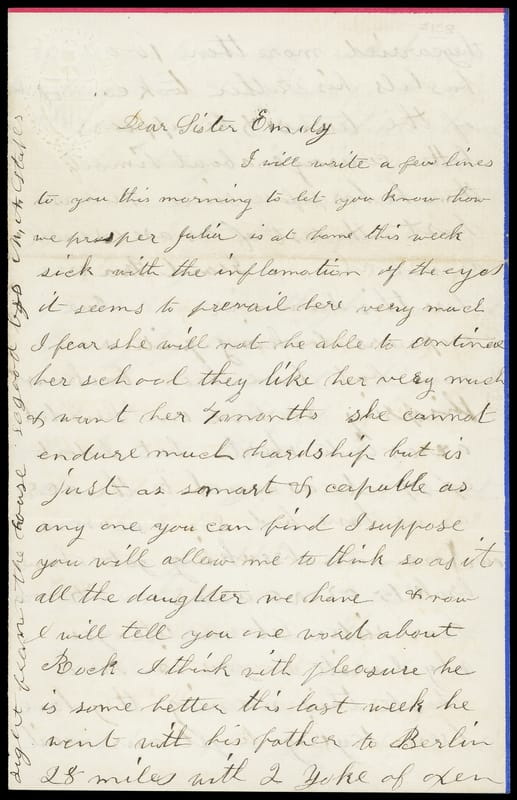 Dear Sister Emily
I will write a few lines
to you this morning to let you know how
we prosper Julia is at home this week
sick with the inflamation of the eyes
it seems to prevail here very much
I fear she will not be able to continue
her school they like her very much
& want her 7 months she cannot
endure much hardship but is
just as smart & capable as
any one you can find I suppose
you will allow me to think so as it
all the daughter we have & now
I will tell you one word about
Rock I think with pleasure he
is some better this last week he
went with his father to Berlin
28 miles with 2 Yoke of oxen
the house so good by